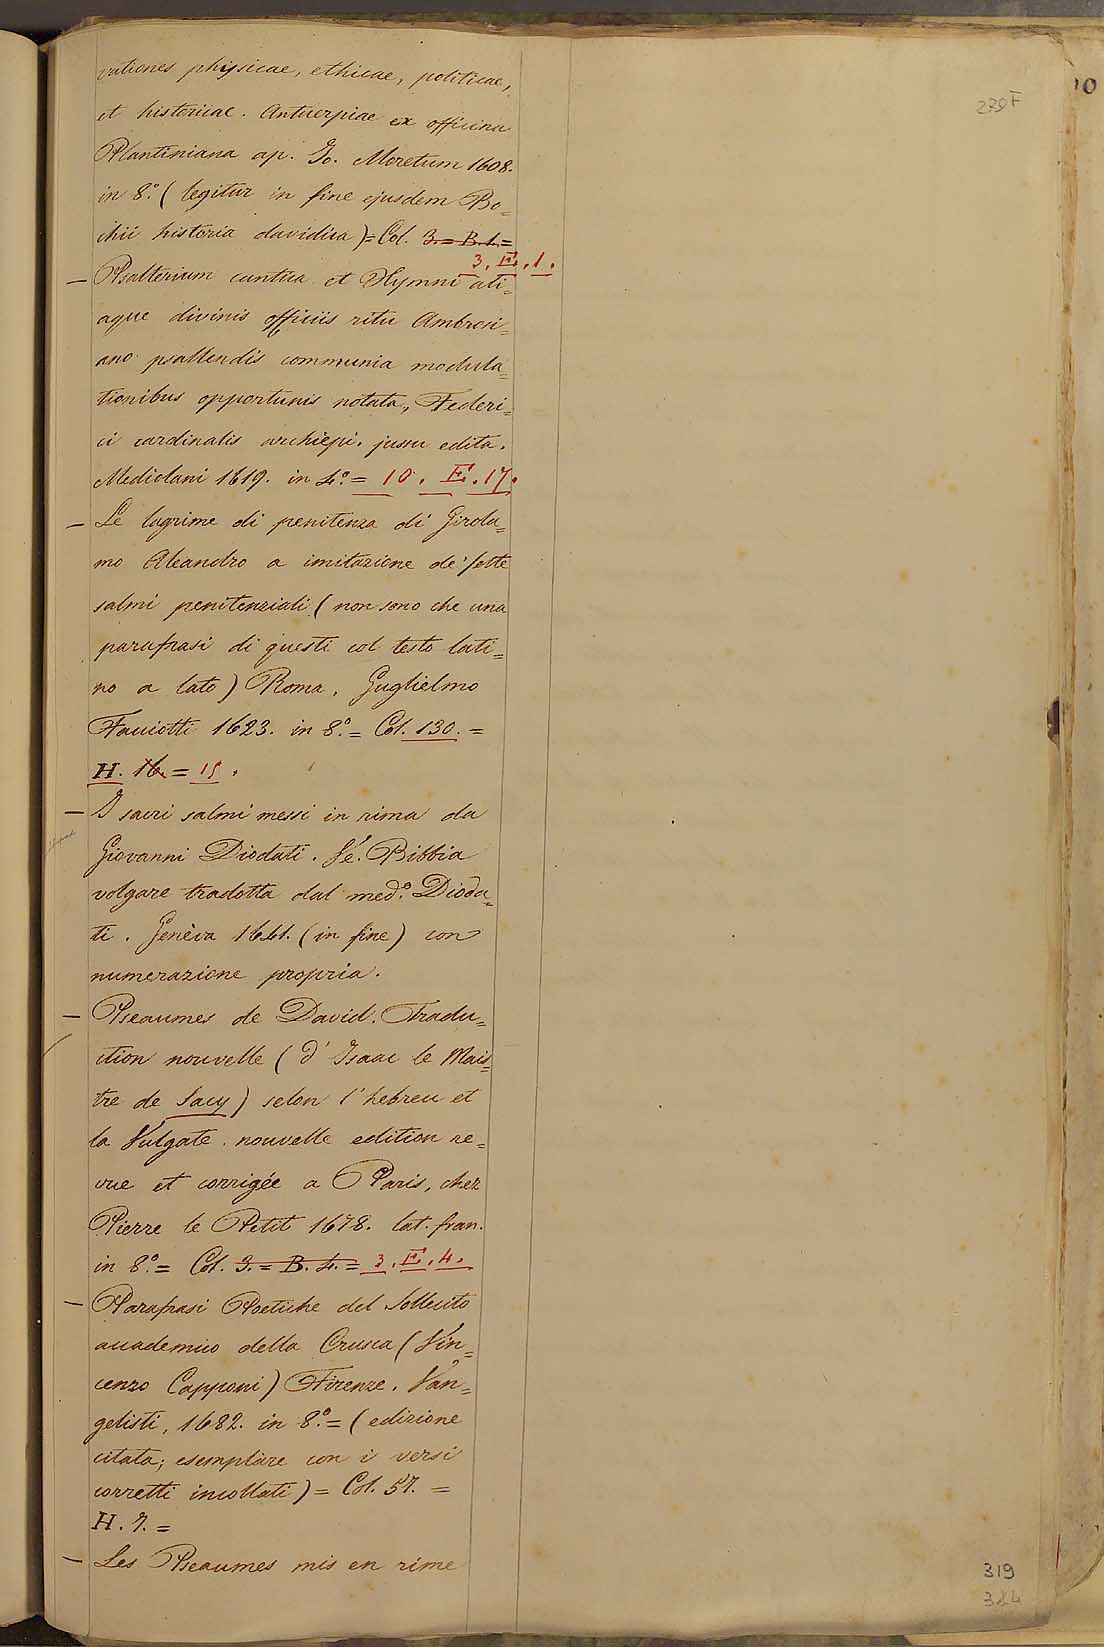 vationes physicae, ethicae, politicae,
et historicae. Antuerpiae ex officina
Plantiniana ap. Io. Moretum 1608.
in 8.° (legitur in fine ejusdem Bo=
chii historia davidica) = Col. 3. = B. 1. =
3. E. 1.
— Psalterium cantica et Hymni ali=
aque divinis officiis ritu Ambrosi=
ano psallendis communia modula=
tionibus opportunis notata, Federi=
ci cardinalis archiepi. jussu edita.
Mediolani 1619. in 4.° = 10. E. 17.
— Le lagrime di penitenza di Girola=
mo Aleandro a imitazione de' sette
salmi penitenziali (non sono che una
parafrasi di questi col testo lati=
no a lato) Roma, Guglielmo
Facciotti 1623. in 8.° = Col. 130. =
H. 16. = 15.
— I sacri salmi messi in rima da
Giovanni Diodati. Ve. Bibbia
volgare tradotta dal med.° Dioda=
ti. Genèva 1641. (in fine) con
numerazione propria.
— Pseaumes de David. Tradu=
ction nouvelle (d' Isaac le Mais=
tre de Sacy) selon l' hebreu et
la Vulgate. nouvelle edition re=
vue et corrigée a Paris, chez
Pierre le Petit 1678. lat. fran.
in 8.° = Col. 3. = B. 4. = 3. E. 4.
— Parafrasi Poetiche del Sollecito
accademico della Crusca (Vin=
cenzo Capponi) Firenze. Van=
gelisti, 1682. in 8.° = (edizione
citata; esemplare con i versi
corretti incollati) = Col. 57. =
H. 7. =
— Les Pseaumes mis en rime
239F
319